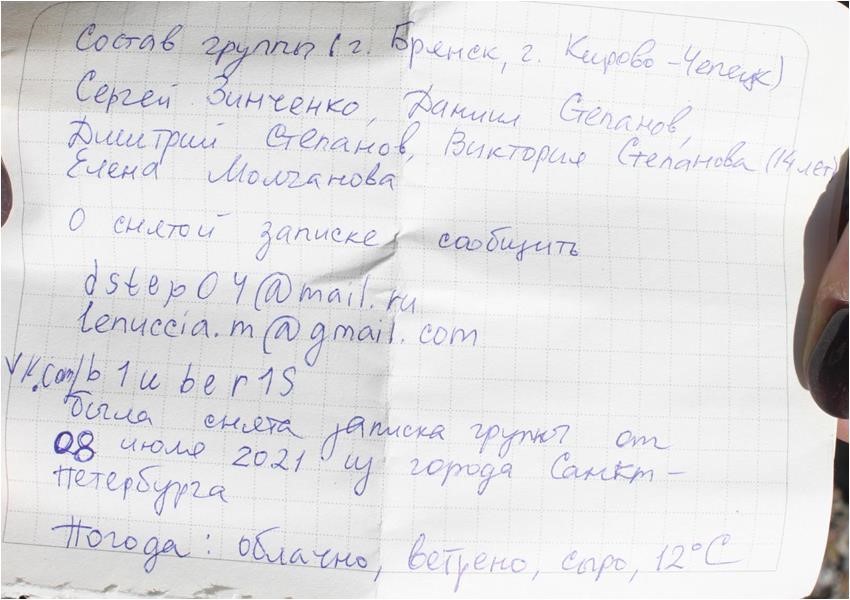 Состав группы (г. Брянск, г. Кирово-Чепецк)
Сергей Зинченко, Даниил Степанов,
Дмитрий Степанов, Виктория Степанова (14 лет)
Елена Молчанова
О снятой записке сообщить
dstep04@mail.ru
lenuccia.m@gmail.com
vk.com/b1uber1s
была снята записка группы от
08 июля 2021 из города Санкт-
Петербурга
Погода: облачно, ветрено, сыро, 12°C